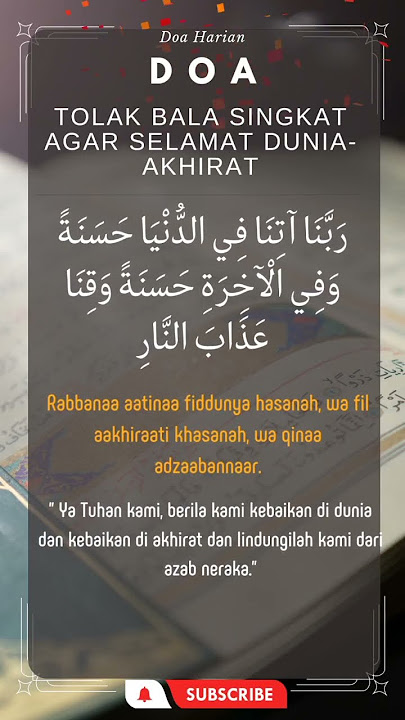 Doa Harian
DOA
TOLAK BALA SINGKAT
AGAR SELAMAT DUNIA-
AKHIRAT
رَبَّنَا آتِنَا فِي الدُّنْيَا حَسَنَةً
وَفِي الْآخِرَةِ حَسَنَةً وَقِنَا
عَذَابَ النَّارِ
Rabbanaa aatinaa fiddunya hasanah, wa fil
aakhiraati khasanah, wa qinaa
adzaabannaar.
" Ya Tuhan kami, berila kami kebaikan di dunia
dan kebaikan di akhirat dan lindungilah kami dari
azab neraka."
SUBSCRIBE